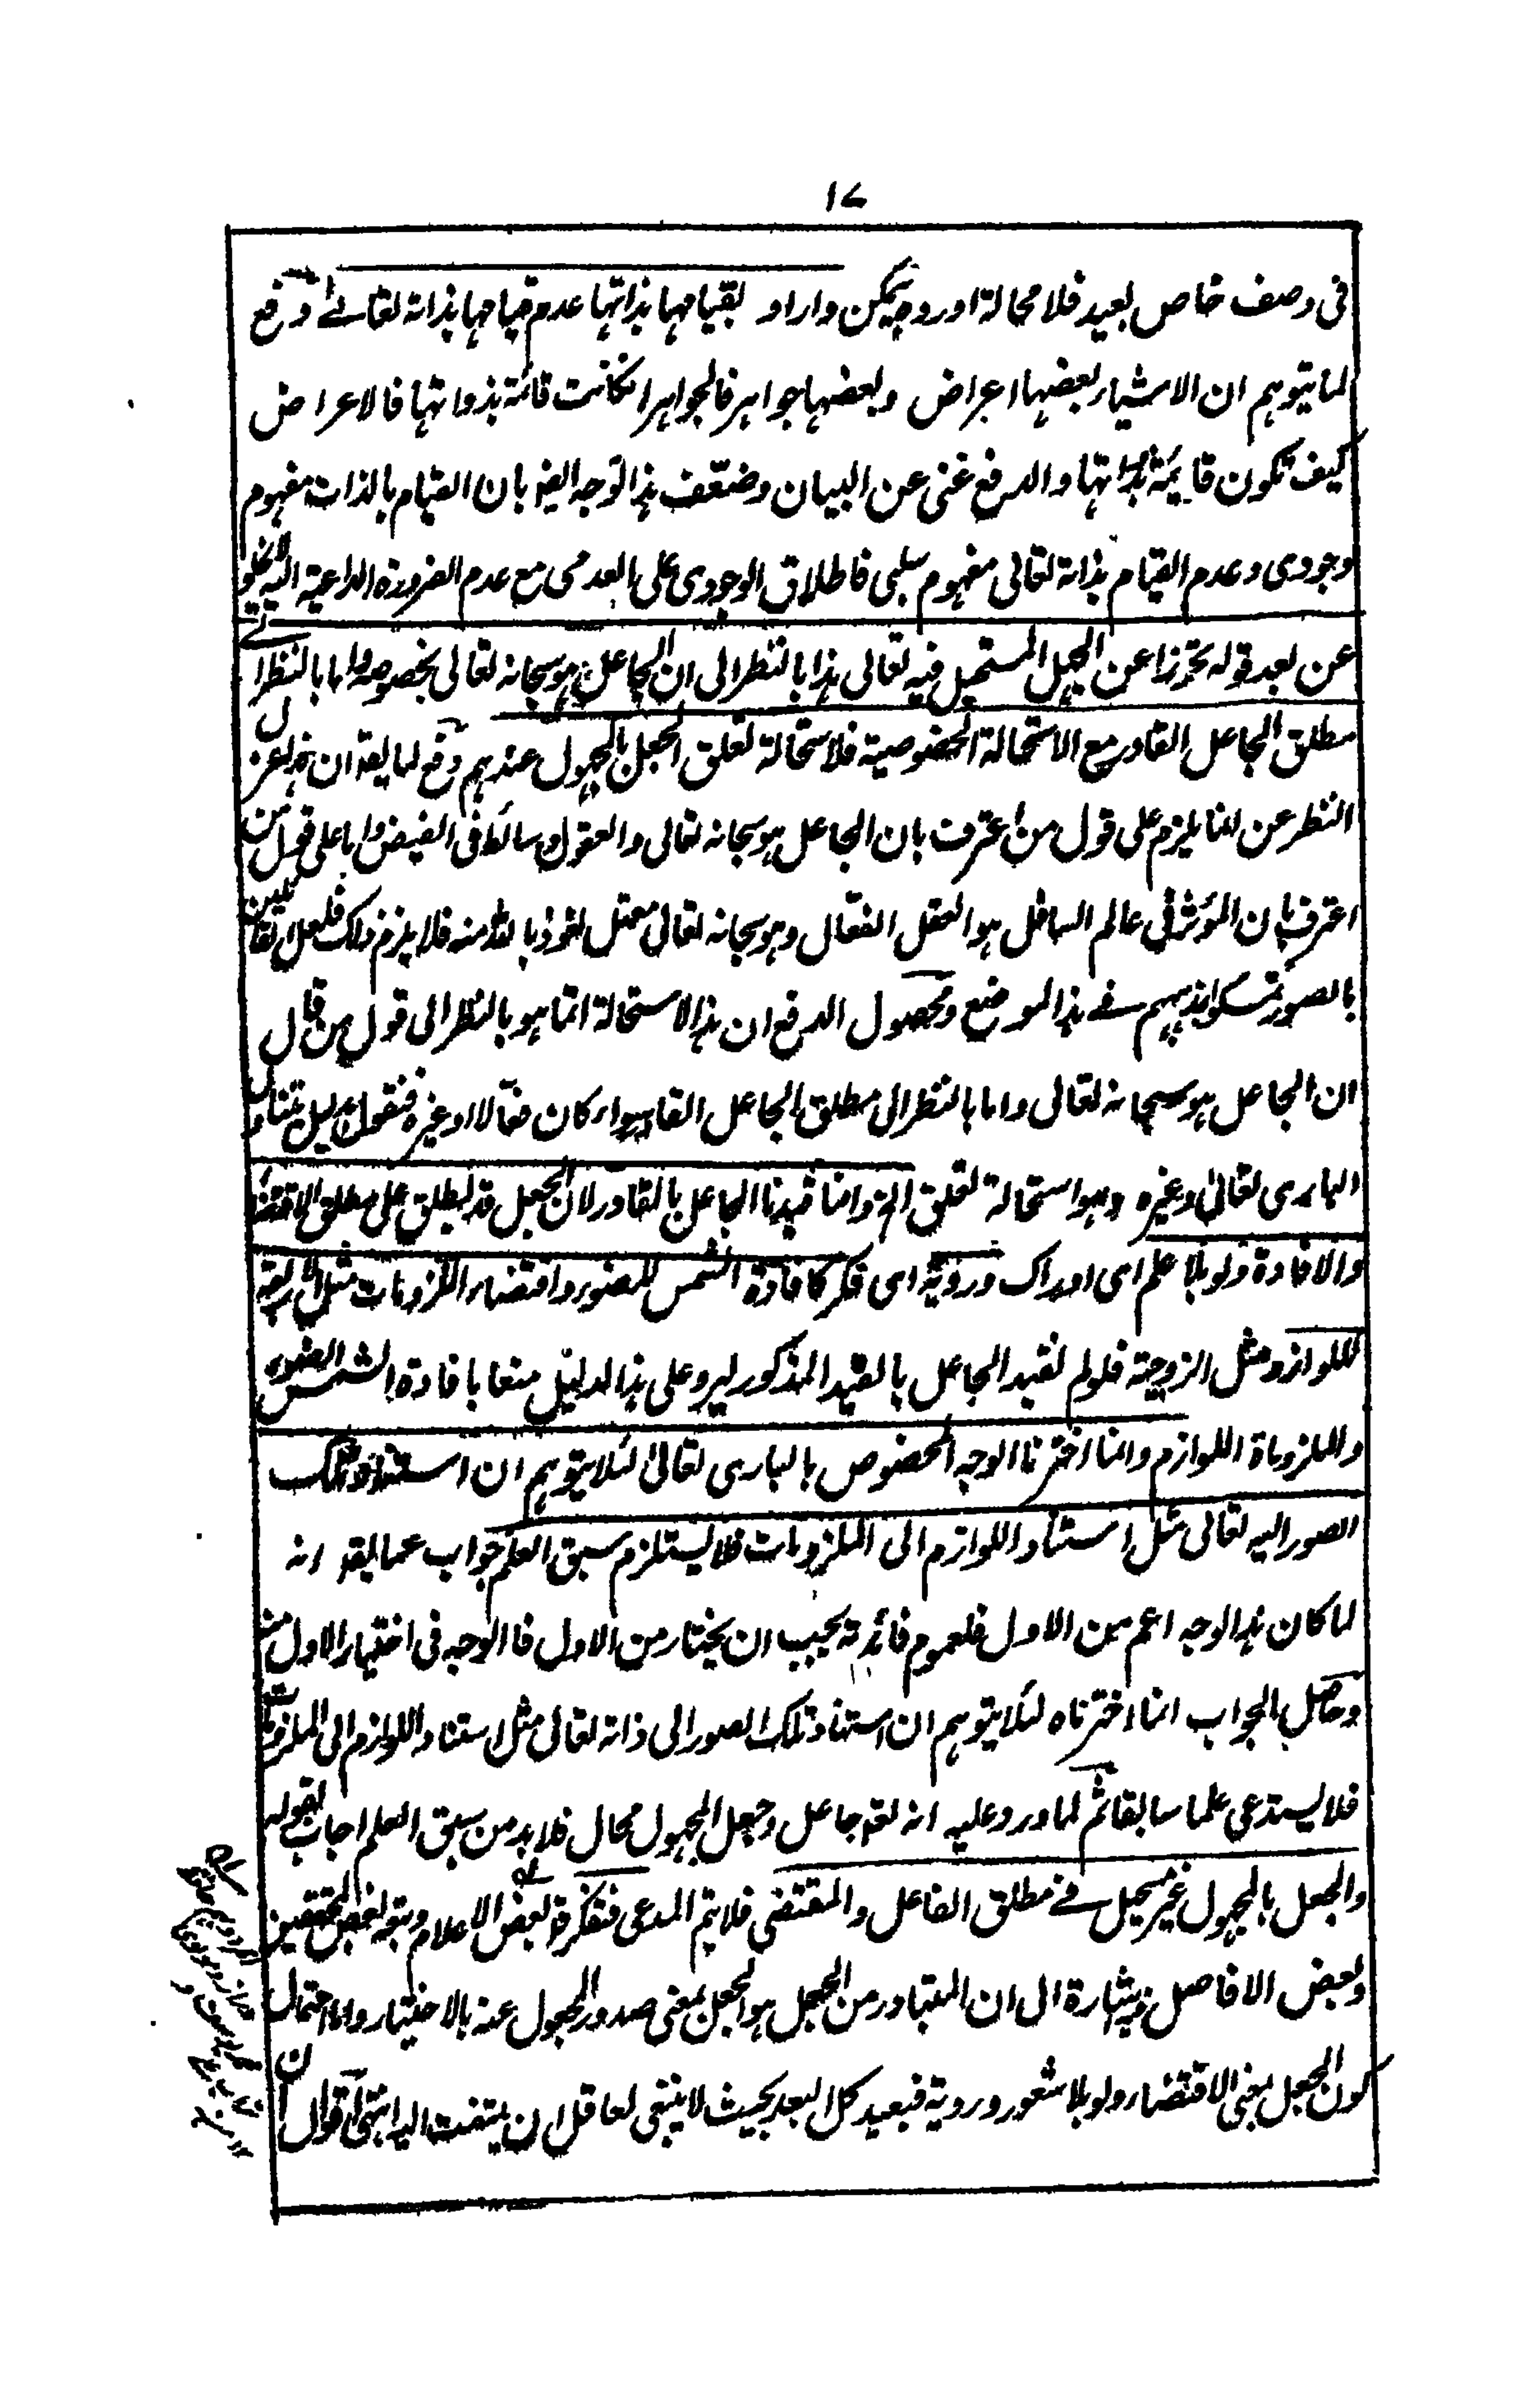 ۱۷
فى وصف خاص بعيد فلا محالة اورد ويمكن واراد بقيامها بذاتها عدم قيامها بذاته تعالى دفع
لما يتوهم ان الاشياء بعضها اعراض وبعضها جواهر فالجواهر انكانت قائمة بذواتها فالاعراض
كيف تكون قايمة بذاتها والدفع غنى عن البيان وضعّف هذا الوجه ايضا بان القيام بالذات مفهوم
وجودى وعدم القيام بذاته تعالى مفهوم سلبى فاطلاق الوجودى على العدمى مع عدم الضرورة الداعية اليه لا يخلو
عن بعد قوله تحرزا عن الجهل المستحيل فيه تعالى هذا بالنظر الى ان الجاعل هو سبحانه تعالى بخصوصه واما بالنظر الى
مطلق الجاعل القادر مع الاستحالة المخصوصية فلاستحالة تعلق الجعل بالمجهول عندهم دفع لما يقد ان هذا عزل
النظر عن انما يلزم على قول من اعترف بان الجاعل هو سبحانه تعالى والعقول وسائط فى الفيض واما على قول من
اعترف بان المؤثر فى عالم السافل هو العقل الفعّال وهو سبحانه تعالى معتل نعوذ بالله منه فلا يلزم ذلك فلعل القائلين
بالصور تمسكوا بمذهبهم فے هذا الموضع ومحصول الدفع ان هذا الاستحالة انما هو بالنظر الى قول من قال
ان الجاعل هو سبحانه تعالى واما بالنظر الى مطلق الجاعل القادر سواء كان فعّالا او غيره فنقول بدليل يتناول
البارى تعالى وغيره وهو استحالة تعلق الخ وانما قيدنا الجاعل بالقادر لان الجعل قد يطلق على مطلق الاقتضاء
والافادة ولو بلا علم اى ادراك وروية اى فكر كافادة الشمس للضوء واقتضاء الملزومات مثل الاربعة
للوازم مثل الزوجية فلو لم نقيد الجاعل بالقيد المذكور ليرد على هذا الدليل منعا بافادة الشمس الضوء
والملزوماة اللوازم وانما اخترنا الوجه المخصوص بالبارى تعالى لئلا يتوهم ان استناد تلك
الصور اليه تعالى مثل استناد اللوازم الى الملزومات فلا يستلزم سبق العلم جواب عما يقد انه
لما كان هذا الوجه اعم من الاول فلعموم فائدته يجب ان يختار من الاول فما الوجه فى اختيار الاول منه
وحاصل الجواب انما اخترناه لئلا يتوهم ان استناد تلك الصور الى ذاته تعالى مثل استناد اللوازم الى الملزومات
فلا يستدعى علما سابقا ثم لما ورد عليه انه لقد جاعل وجعل المجهول محال فلا بد من سبق العلم اجاب بقوله
والجعل بالمجهول غير مستحيل فے مطلق الفاعل والمقتضى فلا يتم المدعى فتفكر قد بعض الاعلام وتبعه بعض المحققين
وبعض الافاضل فيه اشارة الى ان المتبادر من الجعل هو الجعل بمعنى صدور المجعول عنه بالاختيار واما احتمال
كون الجعل بمعنى الاقتضاء ولو بلا شعور وروية فبعيد كل البعد بحيث لا ينبغى لعاقل ان يلتفت اليه انتهى اقول ان